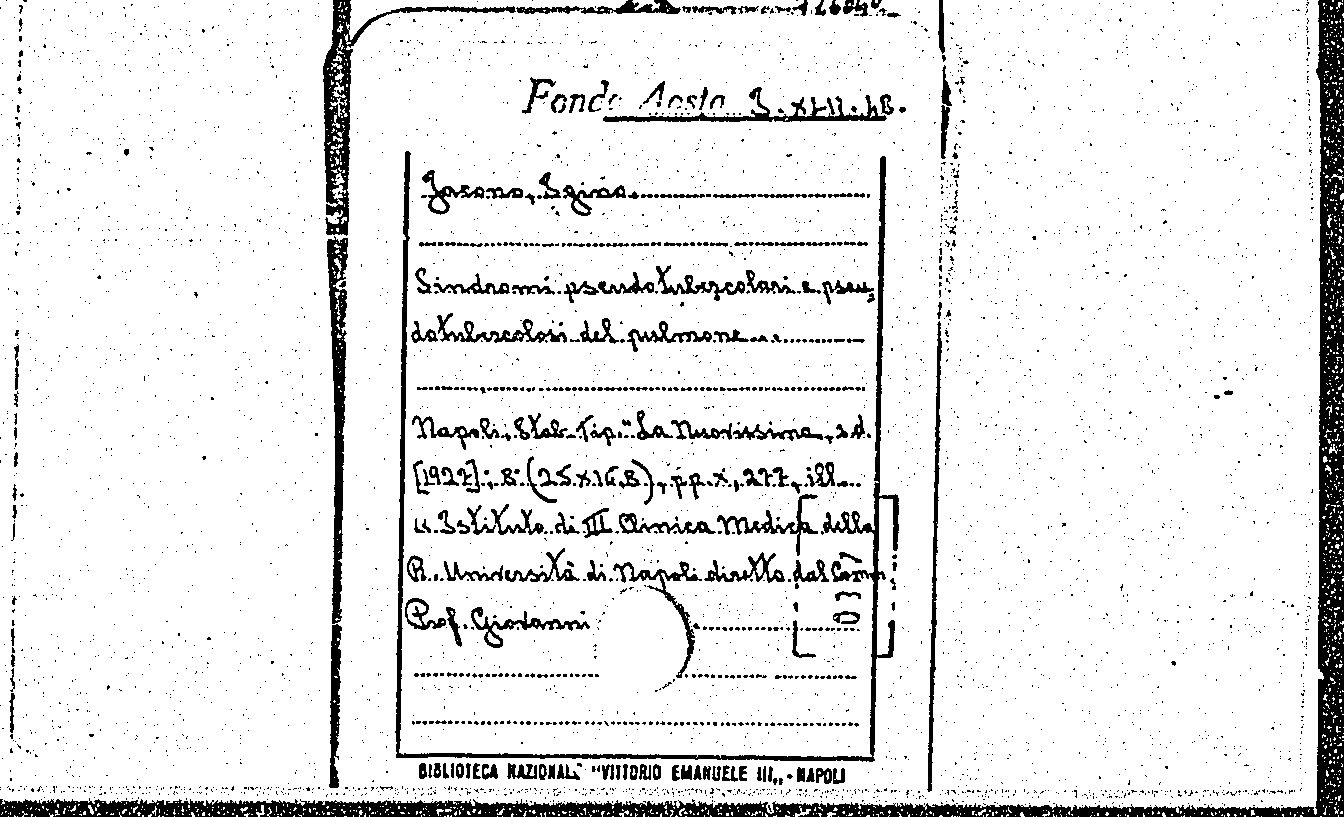 Fondo Aosta I. XLII. 48.
Jacono, Igino.
Sindromi pseudotubercolari e pseu=
dotubercolosi del pulmone....
Napoli, Stab. Tip. "La Nuovissima, s.d.
[1927]; 8° (25x16,8), pp. x, 277, ill..
"Istituto di III Clinica Medica della
R. Università di Napoli diretto dal Comm.
Prof. Giovanni
BIBLIOTECA NAZIONALE "VITTORIO EMANUELE III„ - NAPOLI